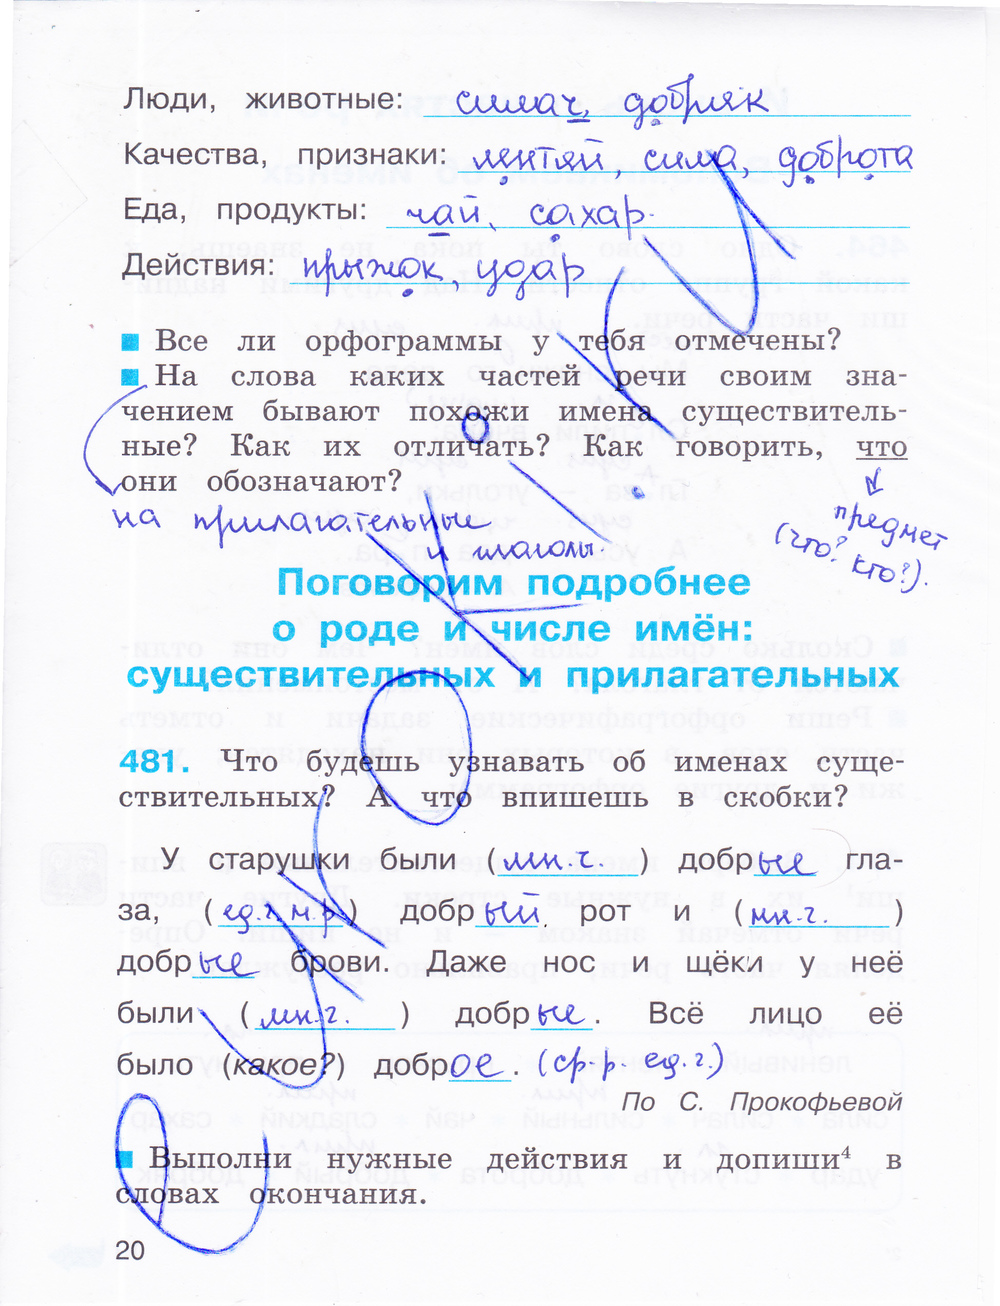 Люди, животные: силач, добряк
Качества, признаки: лентяй, сила, доброта
Еда, продукты: чай, сахар.
Действия: прыжок, удар
Все ли орфограммы у тебя отмечены?
На слова каких частей речи своим зна-
чением бывают похожи имена существитель-
ные? Как их отличать? Как говорить, что
они обозначают?
на прилагательные и глаголы.
предмет
(что? кто?).
Поговорим подробнее
о роде и числе имён:
существительных и прилагательных
481. Что будешь узнавать об именах суще-
ствительных? А что впишешь в скобки?
У старушки были (мн.ч.) добрые гла-
за, (ед.ч. м.р.) добрый рот и (мн.ч.)
добрые брови. Даже нос и щёки у неё
были (мн.ч.) добрые. Всё лицо её
было (какое?) доброе. (ср.р. ед.ч.)
По С. Прокофьевой
Выполни нужные действия и допиши4 в
словах окончания.
20